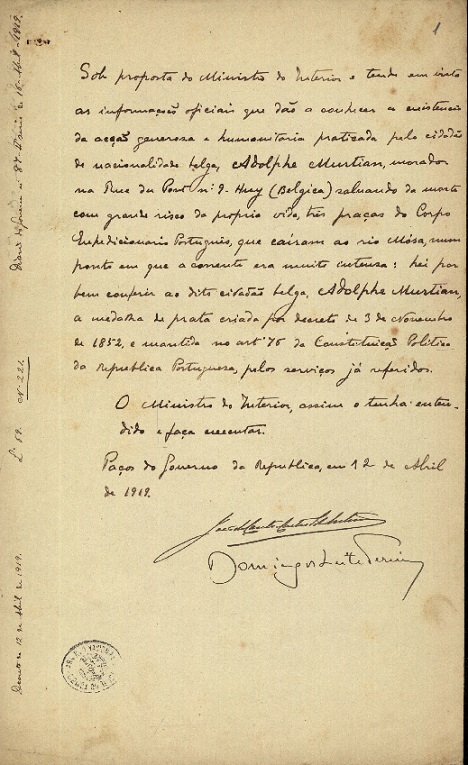 1
Sob proposta do Ministro do Interior e tendo em vista
as informações oficiais que dão a conhecer a existencia
da acção generosa e humanitaria praticada pelo cidadão
de nacionalidade belga, Adolphe Murtian, morador
na Rue du Pont nº 9 - Huy (Belgica) salvando da morte
com grande risco da propria vida, três praças do Corpo
Expedicionario Português, que caíram ao rio Mósa, num
ponto em que a corrente era muito intensa: hei por
bem conferir ao dito cidadão belga, Adolphe Murtian,
a medalha de prata criada por decreto de 3 de Novembro
de 1852, e mantida no artº 76 da Constituição Politica
da Republica Portuguesa, pelos serviços já referidos.
O Ministro do Interior, assim o tenha enten-
dido e faça executar.
Paços do Governo da Republica, em 12 de Abril
de 1919.
Domingos Leite Pereira
Decreto de 12 de Abril de 1919.
Lº 59. Nº 221.
nº 87
de 16 Abril - 1919.